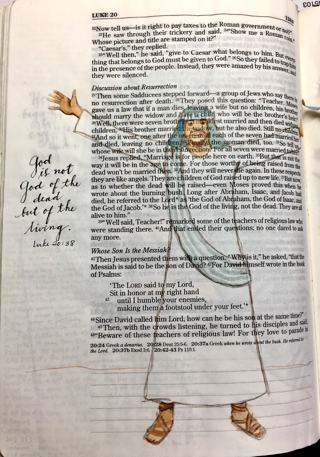 LUKE 20
²²Now tell us—is it right to pay taxes to the Roman government or not?"
²³He saw through their trickery and said, ²⁴"Show me a Roman coin.
Whose picture and title are stamped on it?"
"Caesar's," they replied.
²⁵"Well then," he said, "give to Caesar what belongs to him. But everything
that belongs to God must be given to God." ²⁶So they failed to trap him
in the presence of the people. Instead, they were amazed by his answer, and
they were silenced.
Discussion about Resurrection
²⁷Then some Sadducees stepped forward—a group of Jews who say there is
no resurrection after death. ²⁸They posed this question: "Teacher, Moses
gave us a law that if a man dies, leaving a wife but no children, his brother
should marry the widow and have a child who will be the brother's heir.
²⁹Well, there were seven brothers. The oldest married and then died without
children. ³⁰His brother married the widow, but he also died. Still no children.
³¹And so it went, one after the other, until each of the seven had married her
and died, leaving no children. ³²Finally, the woman died, too. ³³So tell us,
whose wife will she be in the resurrection? For all seven were married to her!"
³⁴Jesus replied, "Marriage is for people here on earth. ³⁵But that is not the
way it will be in the age to come. For those worthy of being raised from the
dead won't be married then. ³⁶And they will never die again. In these respects
they are like angels. They are children of God raised up to new life. ³⁷But now
as to whether the dead will be raised—even Moses proved this when he
wrote about the burning bush. Long after Abraham, Isaac, and Jacob had
died, he referred to the Lord as 'the God of Abraham, the God of Isaac, and
the God of Jacob.' ³⁸So he is the God of the living, not the dead. They are all
alive to him."
³⁹"Well said, Teacher!" remarked some of the teachers of religious law who
were standing there. ⁴⁰And that ended their questions; no one dared to ask
any more.
Whose Son Is the Messiah?
⁴¹Then Jesus presented them with a question. "Why is it," he asked, "that the
Messiah is said to be the son of David? ⁴²For David himself wrote in the book
of Psalms:
'The LORD said to my Lord,
Sit in honor at my right hand
⁴³ until I humble your enemies,
making them a footstool under your feet.'
⁴⁴Since David called him Lord, how can he be his son at the same time?"
⁴⁵Then, with the crowds listening, he turned to his disciples and said,
⁴⁶"Beware of these teachers of religious law! For they love to parade in
20:24 Greek a denarius. 20:28 Deut 25:5-6. 20:37a Greek when he wrote about the bush. He referred to
the Lord. 20:37b Exod 3:6. 20:42-43 Ps 110:1.
God
is not
God of the
dead
but of the
living.
Luke 20:38